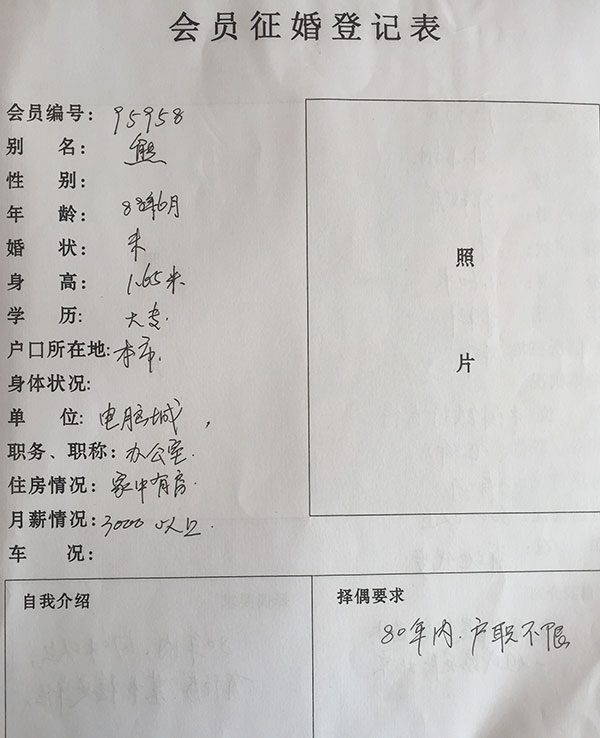 会员征婚登记表
会员编号：95958
别 名：熊
性 别：
年 龄：88年6月
婚 状：未
身 高：1.65米
学 历：大专.
户口所在地：本市.
身体状况：
单 位：电脑城，
职务、职称：办公室.
住房情况：家中有房.
月薪情况：3000以上
车 况：
照
片
自我介绍
择偶要求
80年内.户职不限